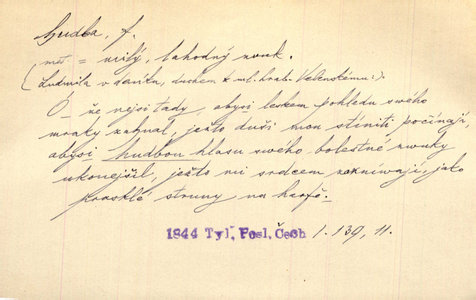 hudba, f.
met = milý, lahodný zvuk.
(Ludmila v daňka, duchem k ml. hrab. Velenskému:).
O – že nejsi tady, abysi leskem pohledu svého
mraky zahnal, ježto duši mou stíniti počínají,
abysi hudbou hlasu svého bolestné zvuky
ukonejšil, ježto mi srdcem rozrývají, jako
prasklé struny na harfě.
1844 Tyl, Posl. Čech 1.139, 11.